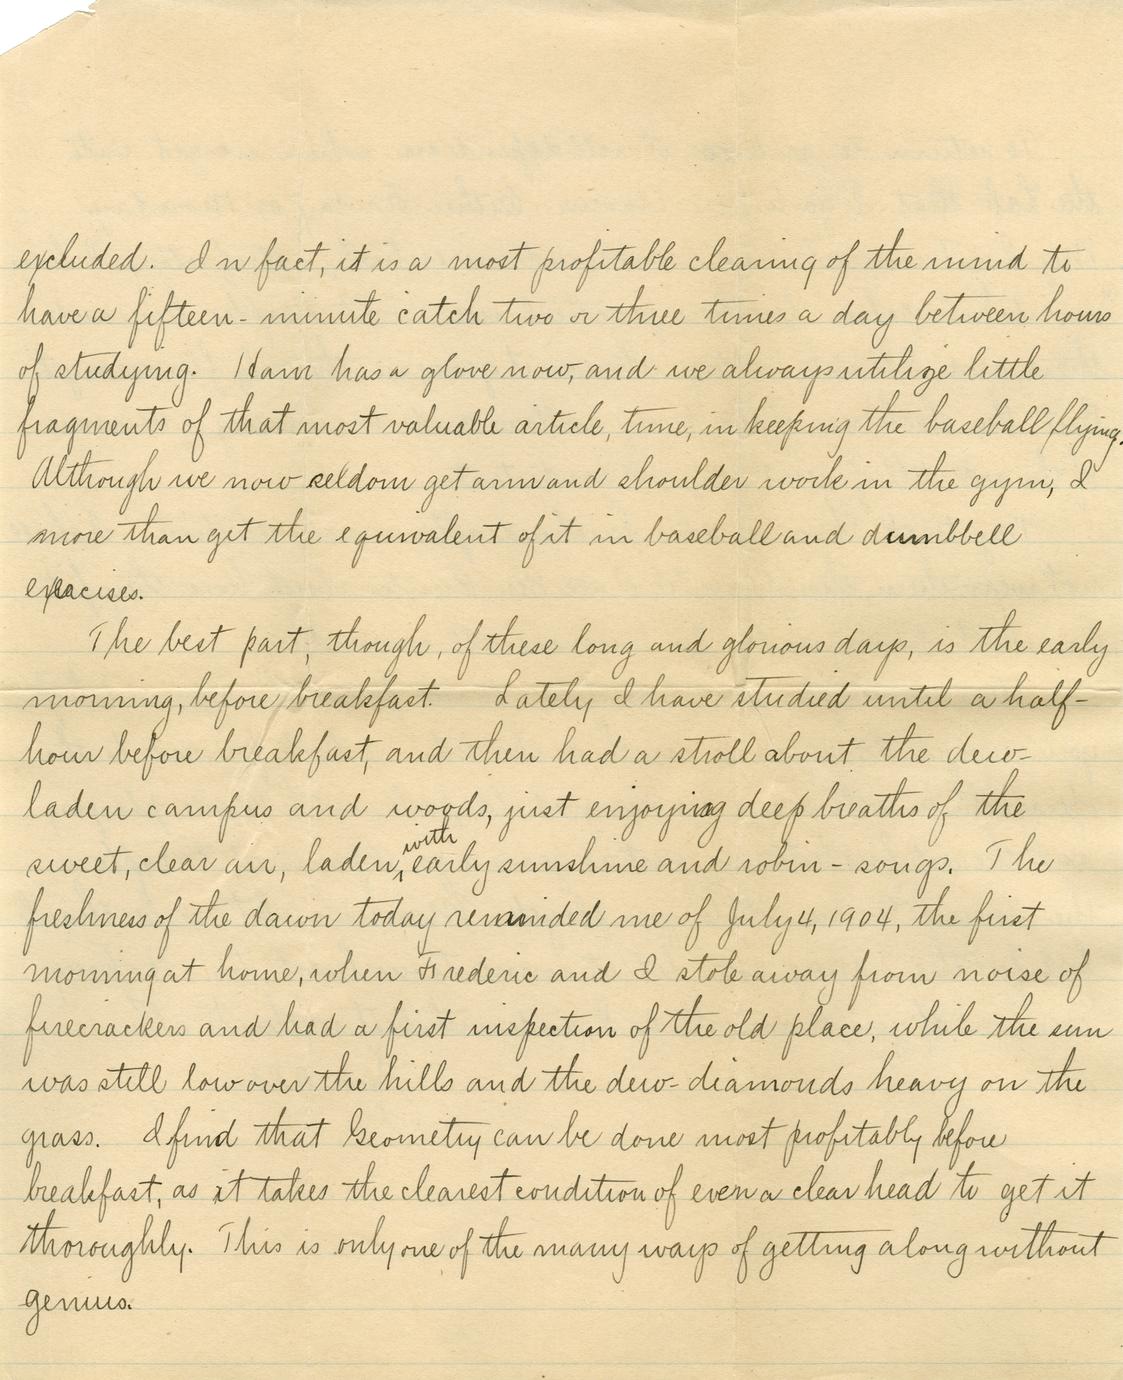 excluded. In fact, it is a most profitable clearing of the mind to
have a fifteen-minute catch two or three times a day between hours
of studying. Ham has a glove now, and we always utilize little
fragments of that most valuable article, time, in keeping the baseball flying.
Although we now seldom get arm and shoulder work in the gym, I
more than get the equivalent of it in baseball and dumbbell
exercises.
The best part, though, of these long and glorious days, is the early
morning, before breakfast. Lately I have studied until a half-
hour before breakfast, and then had a stroll about the dew-
laden campus and woods, just enjoying deep breaths of the
sweet, clear air, laden, with early sunshine and robin-songs. The
freshness of the dawn today reminded me of July 4, 1904, the first
morning at home, when Frederic and I stole away from noise of
firecrackers and had a first inspection of the old place, while the sun
was still low over the hills and the dew-diamonds heavy on the
grass. I find that Geometry can be done most profitably before
breakfast, as it takes the clearest condition of even a clear head to get it
thoroughly. This is only one of the many ways of getting along without
genius.